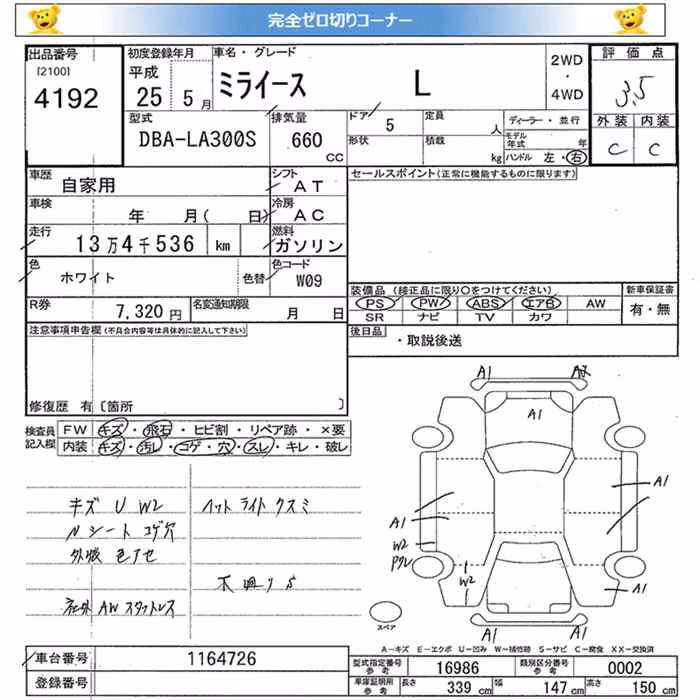 完全ゼロ切りコーナー
出品番号 初度登録年月 車名・グレード 評価点
[2100] 平成 2WD
4192 25 5月 ミライース L ・ 3.5
4WD
型式 排気量 ドア 5 定員 人 ディーラー・並行 外装 内装
DBA-LA300S 660 CC 形状 積載 kg モデル年式 年 C C
ハンドル 左・右
車歴 自家用 シフト AT セールスポイント(正常に機能するものに限ります)
車検 年 月( 日) 冷房 AC
走行 13万4千536 km 燃料 ガソリン
色 ホワイト 色替 色コード W09
装備品(純正品に限り○をつけてください) 新車保証書
PS PW ABS エアB AW 有・無
SR ナビ TV カワ
R券 7,320円 名変通知期限 月 日
後日品 ・取説後送
注意事項申告欄(不具合内容等は具体的に記入して下さい)
修復歴 有〔箇所 〕
検査員記入欄 FW キズ・飛石・ヒビ割・リペア跡・×要
内装 キズ・汚れ・コゲ・穴・スレ・キレ・破レ
キズ U W2 ヘットライトクスミ
Nシートコゲ穴
外板色アセ
社外AWスタットレス
A1
A1
A1
A1
W2
W2
A1
A1
A1
スペア
A-キズ E-エクボ U-凹み W-補修跡 S-サビ C-腐食 XX-交換済
車台番号 1164726
登録番号
型式指定番号 参考 16986 類別区分番号 参考 0002
車庫証明用 参考 長さ 339cm 幅 147cm 高さ 150cm